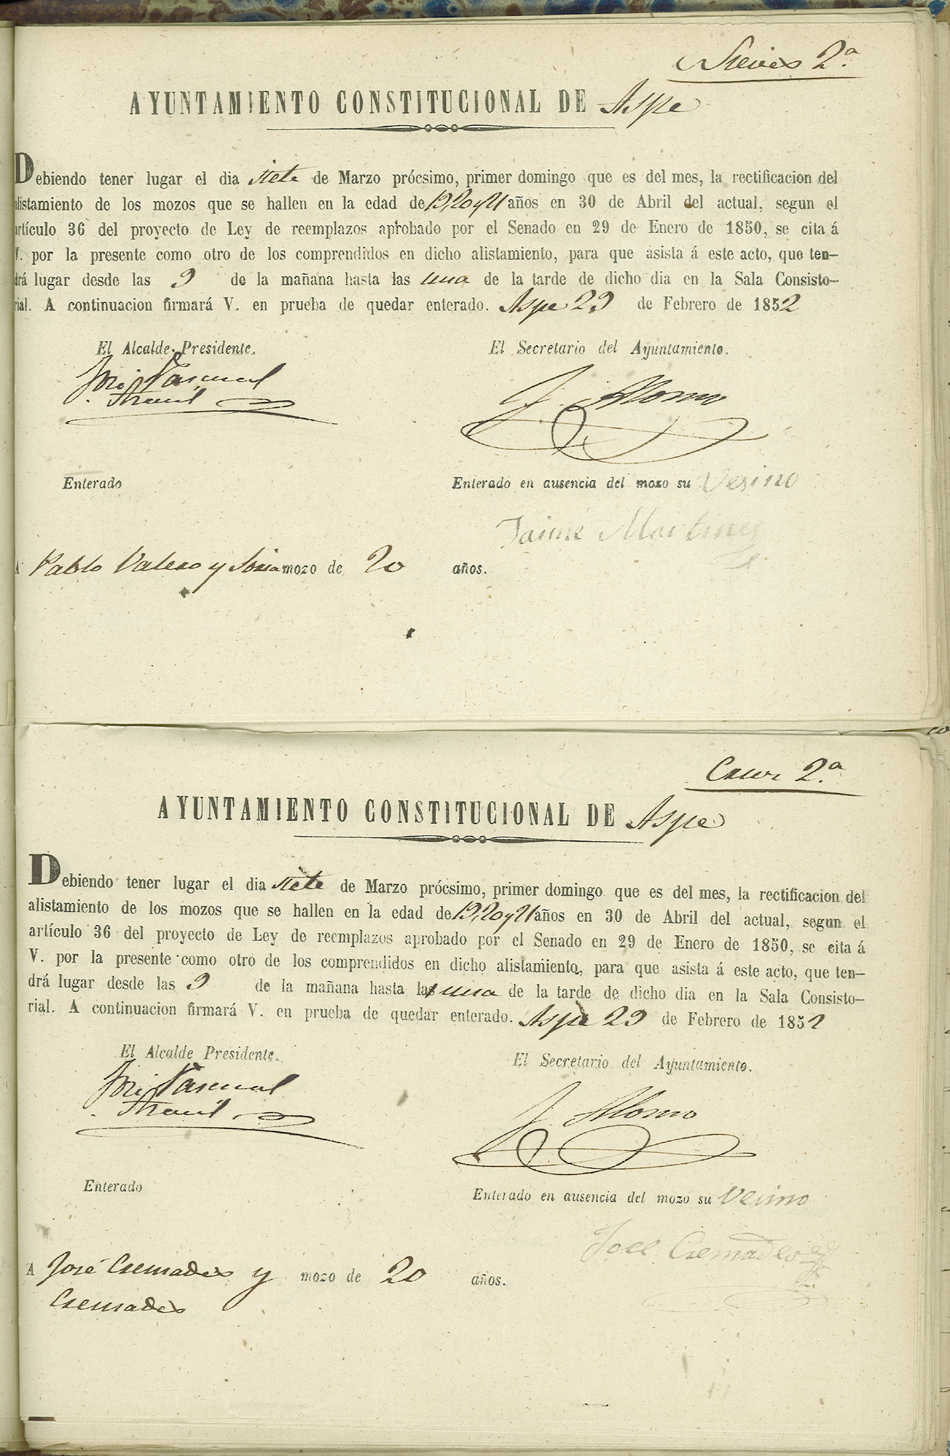 Nieves 2ª
AYUNTAMIENTO CONSTITUCIONAL DE Aspe
Debiendo tener lugar el dia siete de Marzo prócsimo, primer domingo que es del mes, la rectificacion del
alistamiento de los mozos que se hallen en la edad de 19, 20 y 21 años en 30 de Abril del actual, segun el
artículo 36 del proyecto de Ley de reemplazos aprobado por el Senado en 29 de Enero de 1850, se cita á
V. por la presente como otro de los comprendidos en dicho alistamiento, para que asista á este acto, que ten-
drá lugar desde las 9 de la mañana hasta las una de la tarde de dicho dia en la Sala Consisto-
rial. A continuacion firmará V. en prueba de quedar enterado. Aspe 29 de Febrero de 1852
El Alcalde Presidente. El Secretario del Ayuntamiento.
José Pascual J. Alonso
Enterado Enterado en ausencia del mozo su Vesino
Jaime Martinez
A Pablo Valero y mozo de 20 años.
Cruz 2ª
AYUNTAMIENTO CONSTITUCIONAL DE Aspe
Debiendo tener lugar el dia siete de Marzo prócsimo, primer domingo que es del mes, la rectificacion del
alistamiento de los mozos que se hallen en la edad de 19, 20 y 21 años en 30 de Abril del actual, segun el
artículo 36 del proyecto de Ley de reemplazos aprobado por el Senado en 29 de Enero de 1850, se cita á
V. por la presente como otro de los comprendidos en dicho alistamiento, para que asista á este acto, que ten-
drá lugar desde las 9 de la mañana hasta las una de la tarde de dicho dia en la Sala Consisto-
rial. A continuacion firmará V. en prueba de quedar enterado. Aspe 29 de Febrero de 1852
El Alcalde Presidente. El Secretario del Ayuntamiento.
José Pascual J. Alonso
Enterado Enterado en ausencia del mozo su Vecino
Jose Cremades
A José Cremades y mozo de 20 años.
Cremades